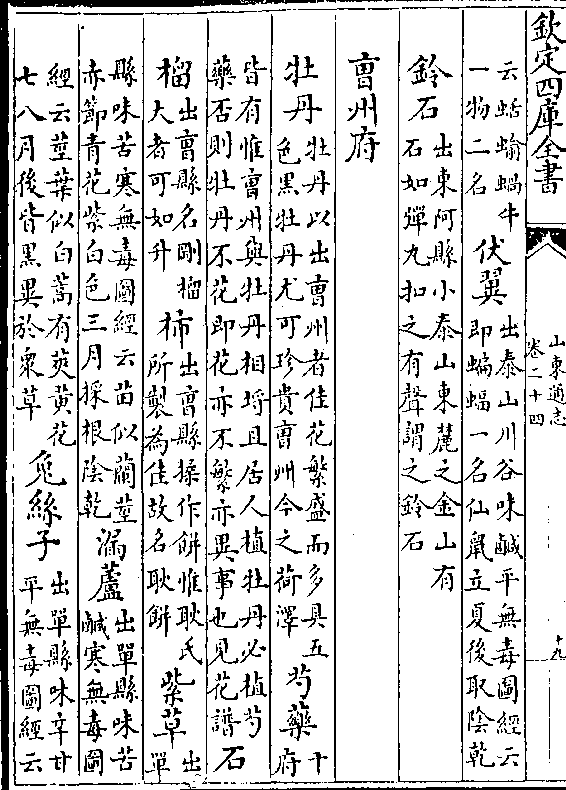 欽定四庫全書
山東通志
卷二十四
十九
云蛞蝓蝸牛
一物二名
伏翼
出泰山川谷味鹹平無毒圖經云
即蝙蝠一名仙䑕立夏後取陰乾
鈴石
出東阿縣小泰山東麓之金山有
石如彈丸扣之有聲謂之鈴石
曹州府
牡丹
牡丹以出曹州者佳花繁盛而多具五
色黑牡丹尤可珍貴曹州今之荷澤
芍藥
十
府
皆有惟曹州與牡丹相埒且居人植牡丹必植芍
藥否則牡丹不花即花亦不繁亦異事也見花譜
石
榴
出曹縣名剛榴
大者可如升
柿
出曹縣揉作餅惟耿氏
所製為佳故名耿餅
紫草
出
單
縣味苦寒無毒圖經云苗似蘭莖
赤節青花紫白色三月採根陰乾
漏蘆
出單縣味苦
鹹寒無毒圖
經云莖葉似白蒿有莢黄花
七八月後皆黑異於衆草
兔絲子
出單縣味辛甘
平無毒圖經云